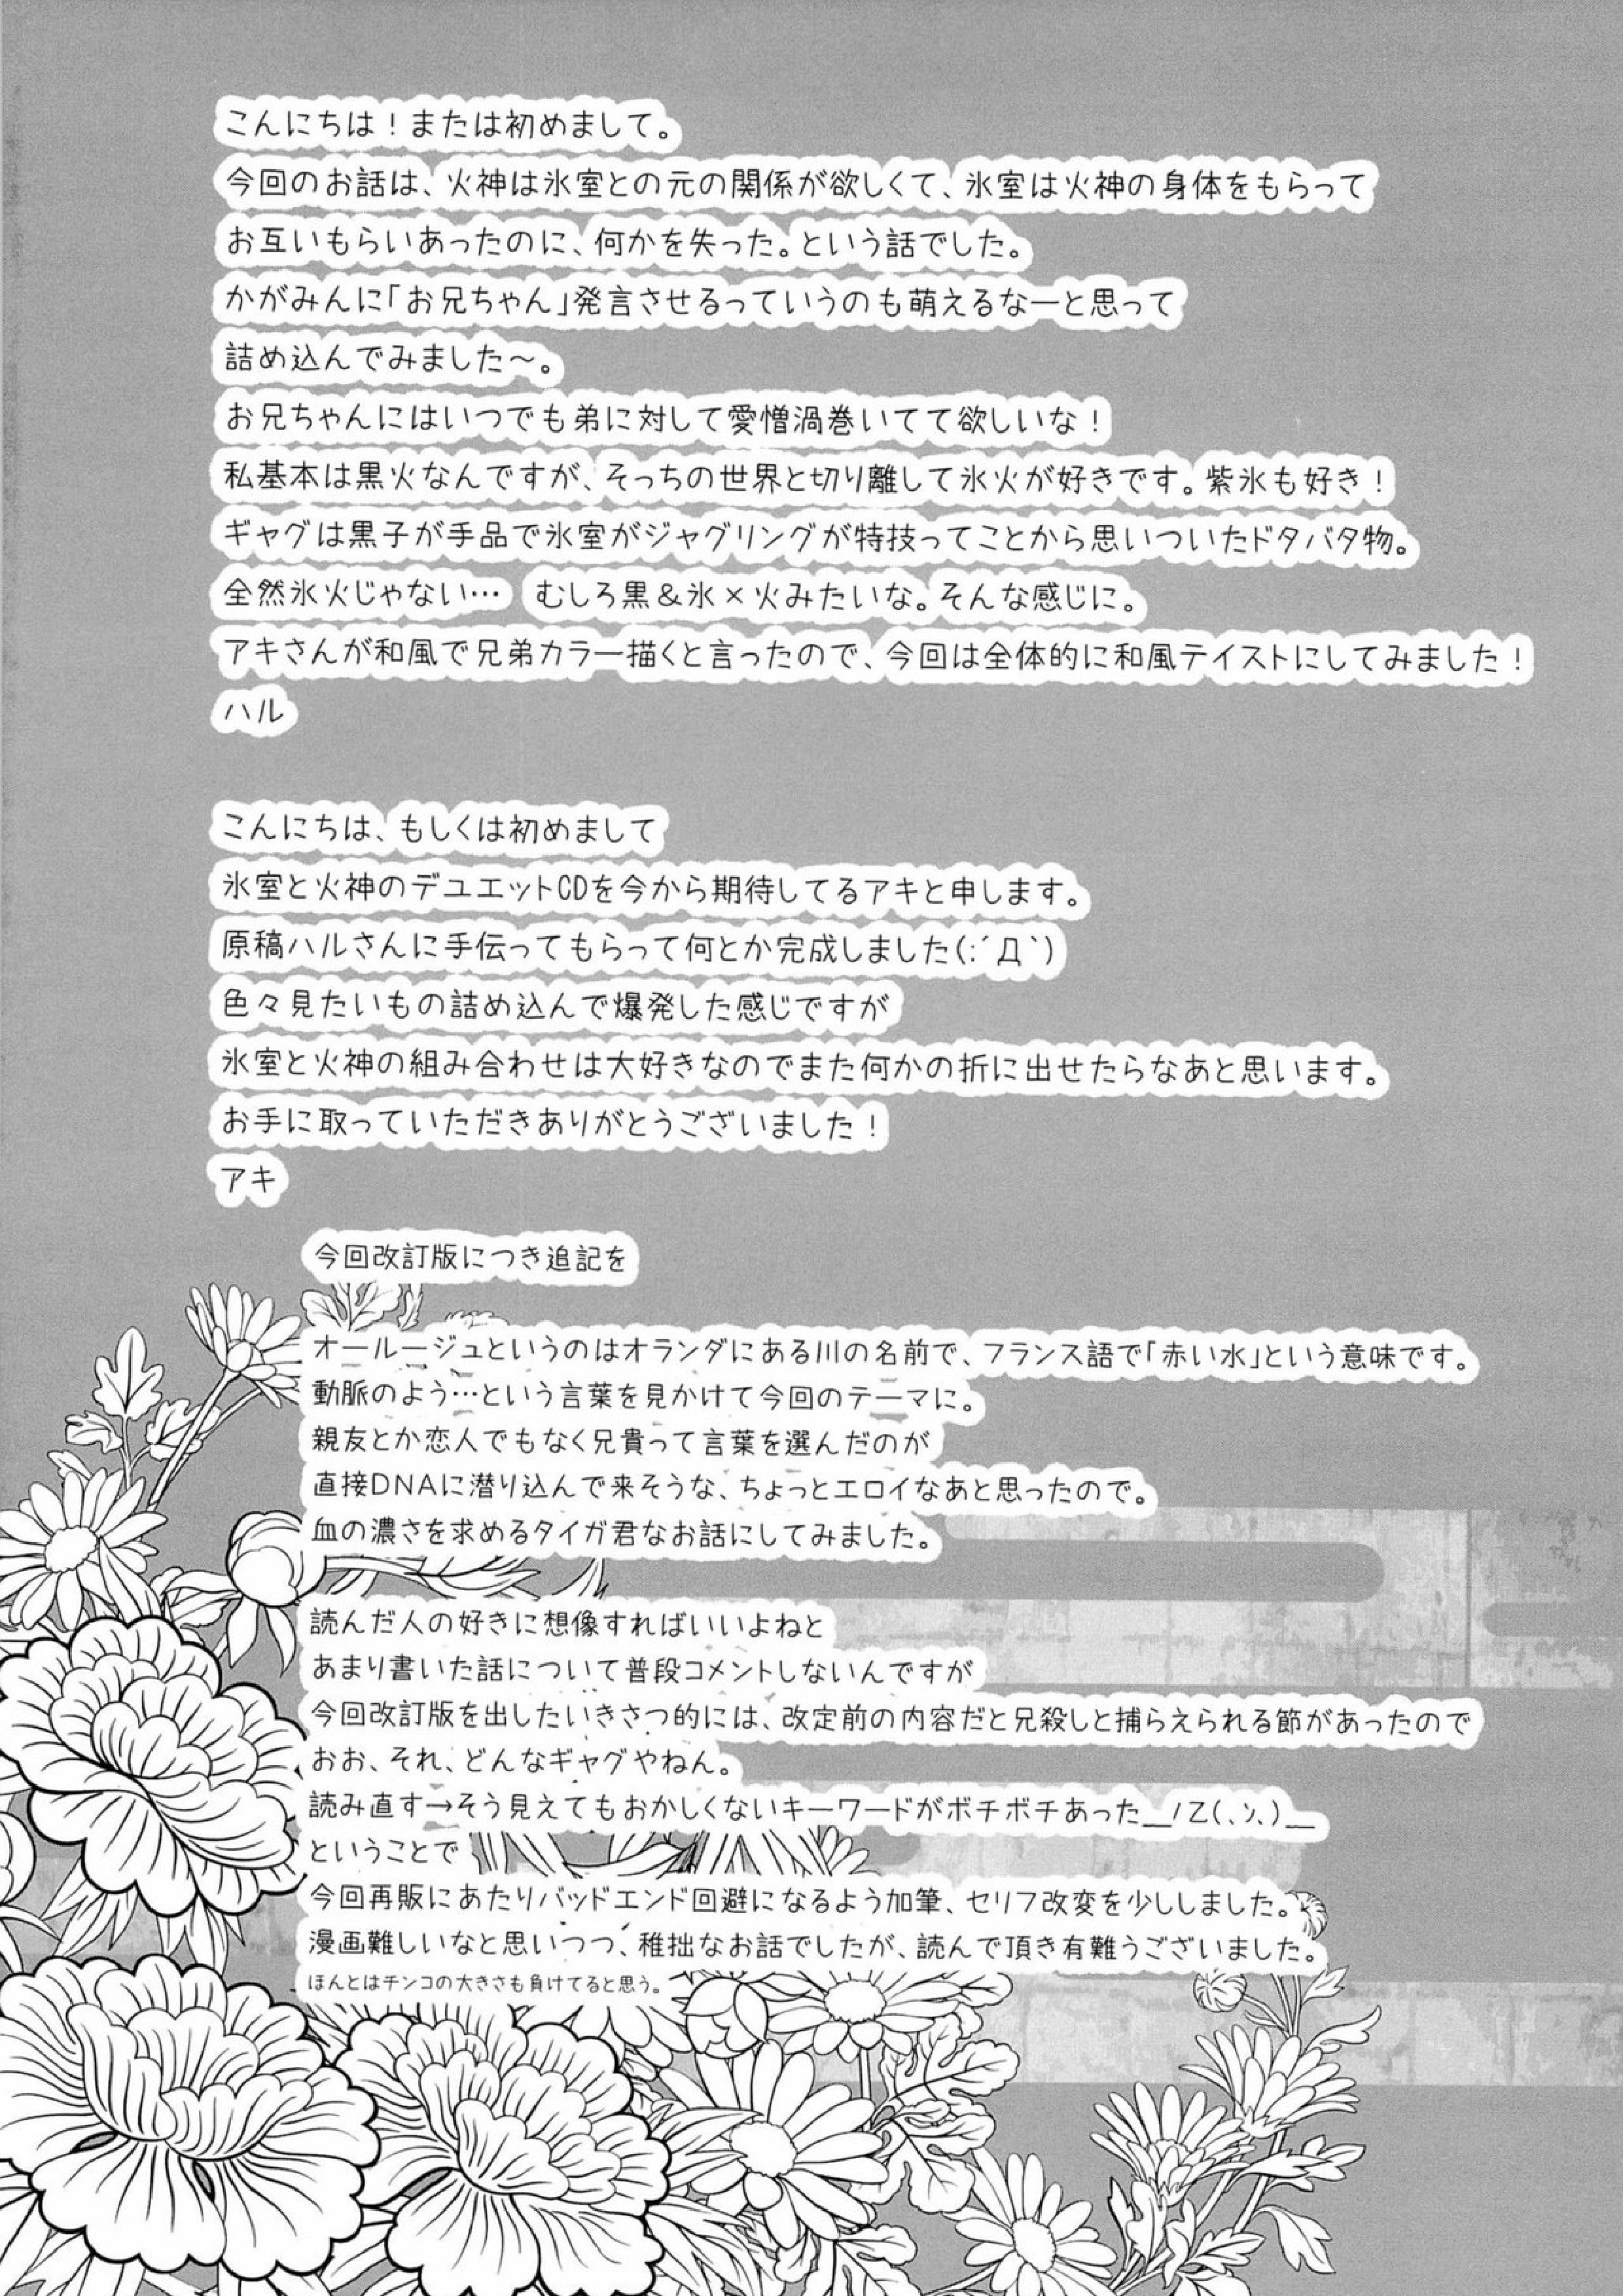 こんにちは！または初めまして。
今回のお話は、火神は氷室との元の関係が欲しくて、氷室は火神の身体をもらって
お互いもらいあったのに、何かを失った。という話でした。
かがみんに「お兄ちゃん」発言させるっていうのも萌えるなーと思って
詰め込んでみました〜。
お兄ちゃんにはいつでも弟に対して愛憎渦巻いてて欲しいな！
私基本は黒火なんですが、そっちの世界と切り離して氷火が好きです。紫氷も好き！
ギャグは黒子が手品で氷室がジャグリングが特技ってことから思いついたドタバタ物。
全然氷火じゃない… むしろ黒＆氷×火みたいな。そんな感じに。
アキさんが和風で兄弟カラー描くと言ったので、今回は全体的に和風テイストにしてみました！
ハル
こんにちは、もしくは初めまして
氷室と火神のデユエットCDを今から期待してるアキと申します。
原稿ハルさんに手伝ってもらって何とか完成しました(;´Д｀)
色々見たいもの詰め込んで爆発した感じですが
氷室と火神の組み合わせは大好きなのでまた何かの折に出せたらなあと思います。
お手に取っていただきありがとうございました！
アキ
今回改訂版につき追記を
オールージュというのはオランダにある川の名前で、フランス語で「赤い水」という意味です。
動脈のよう…という言葉を見かけて今回のテーマに。
親友とか恋人でもなく兄貴って言葉を選んだのが
直接DNAに潜り込んで来そうな、ちょっとエロイなあと思ったので。
血の濃さを求めるタイガ君なお話にしてみました。
読んだ人の好きに想像すればいいよねと
あまり書いた話について普段コメントしないんですが
今回改訂版を出したいきさつ的には、改定前の内容だと兄殺しと捕らえられる節があったので
おお、それ、どんなギャグやねん。
読み直す→そう見えてもおかしくないキーワードがボチボチあった＿ﾉ乙(､ﾝ､)＿
ということで
今回再販にあたりバッドエンド回避になるよう加筆、セリフ改変を少ししました。
漫画難しいなと思いつつ、稚拙なお話でしたが、読んで頂き有難うございました。
ほんとはチンコの大きさも負けてると思う。